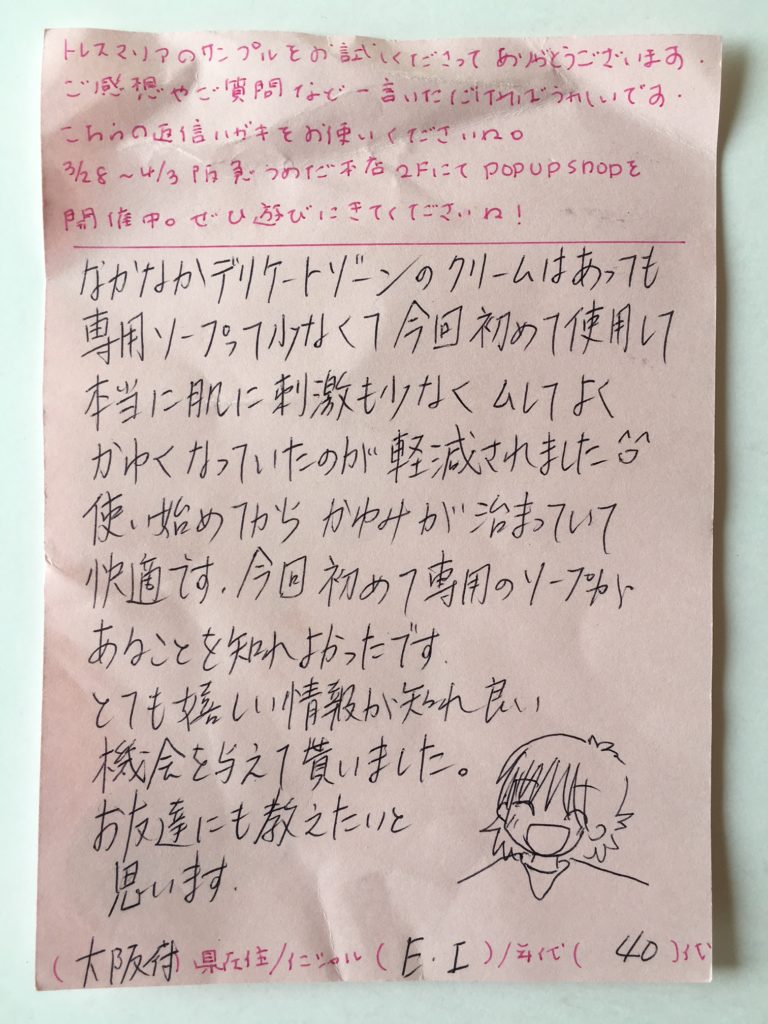 トレスマリアのサンプルをお試しくださって ありがとうございます.
ご感想やご質問など一言いただければうれしいです.
こちらの返信ハガキをお使いくださいね。
3/28〜4/3 阪急うめだ本店 2FにてPOPUPSHOPを
開催中。ぜひ遊びにきてくださいね!
なかなかデリケートゾーンのクリームはあっても
専用ソープって少なくて今回初めて使用して
本当に肌に刺激も少なく ムしてよく
かゆくなっていたのが軽減されました^^
使い始めてから かゆみが治まっていて
快適です.今回初めて専用のソープが
あることを知れよかったです.
とても嬉しい情報が知れ良い
機会を与えて貰いました。
お友達にも教えたいと
思います.
(大阪府)県在住/イニシャル(E.I)/年代(40)代